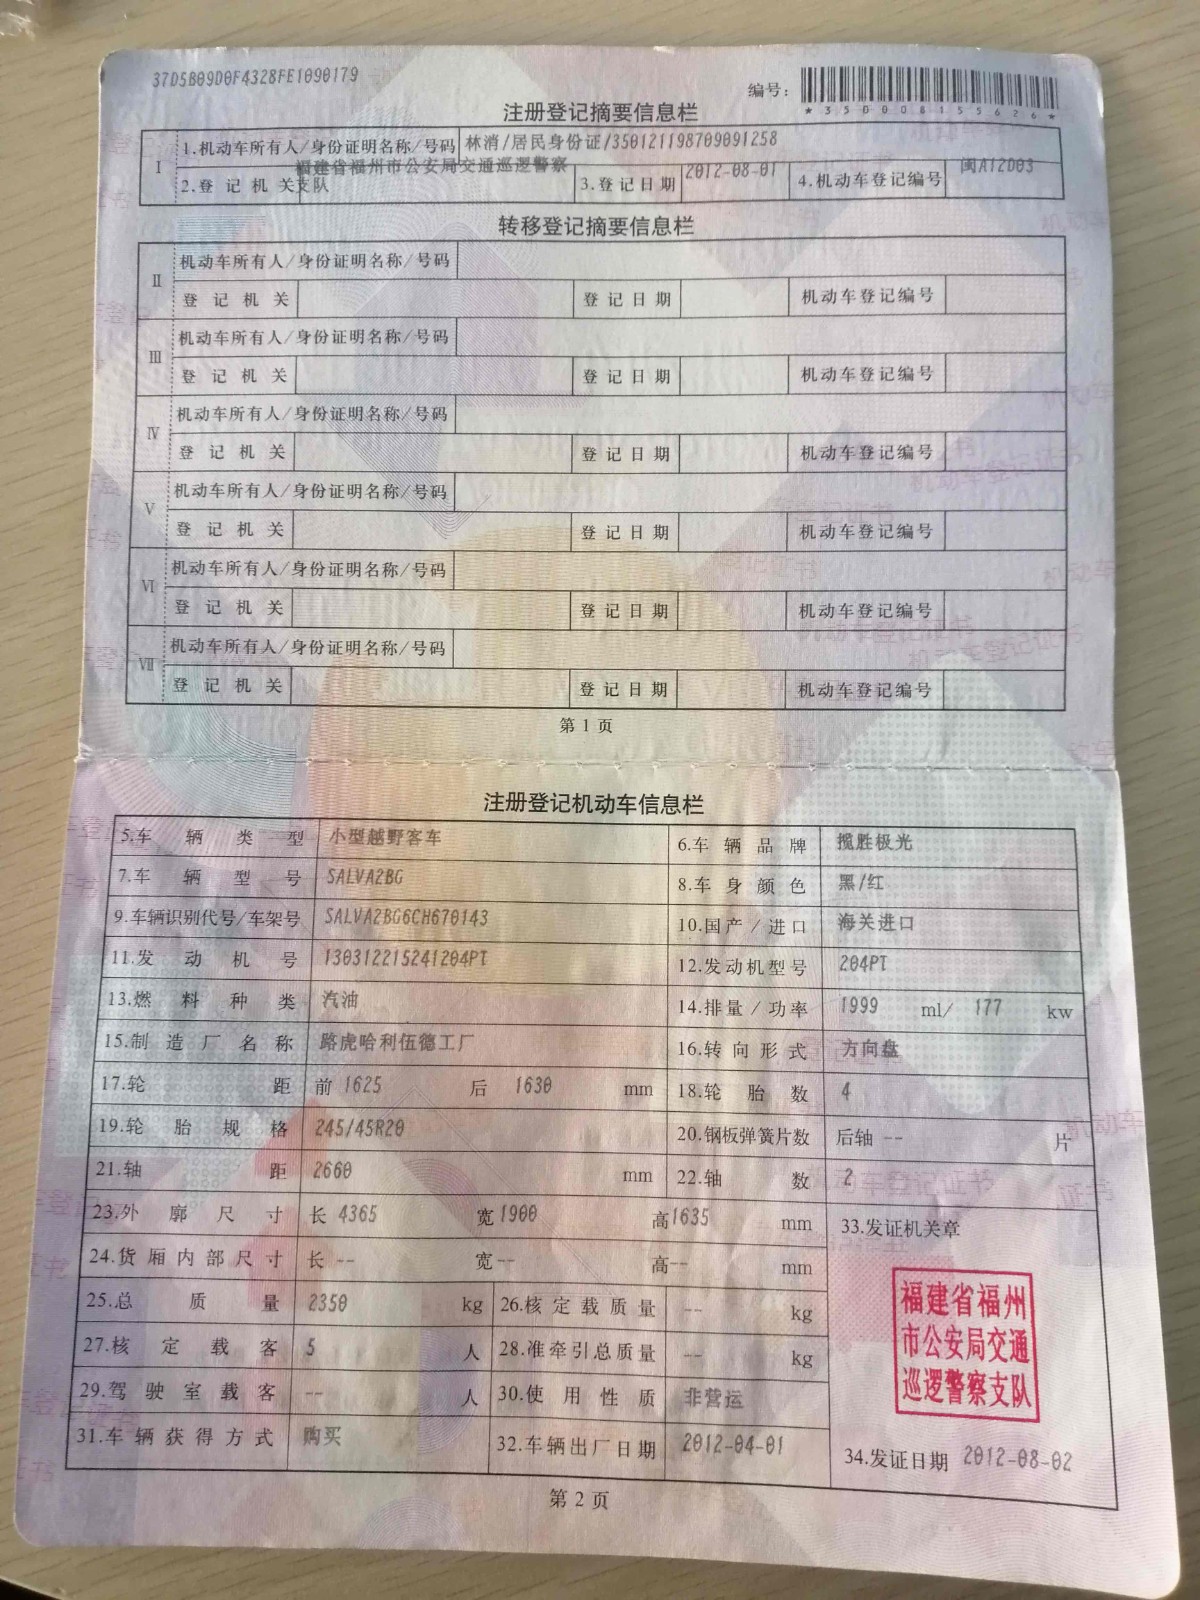 37D5B09D0F4328FE1090179
编号：
*350008155626*
注册登记摘要信息栏
Ⅰ 1.机动车所有人/身份证明名称/号码 林消/居民身份证/350121198709091258
福建省福州市公安局交通巡逻警察
2.登记机关 支队 3.登记日期 2012-08-01 4.机动车登记编号 闽A12D03
转移登记摘要信息栏
Ⅱ 机动车所有人/身份证明名称/号码
登记机关 登记日期 机动车登记编号
Ⅲ 机动车所有人/身份证明名称/号码
登记机关 登记日期 机动车登记编号
Ⅳ 机动车所有人/身份证明名称/号码
登记机关 登记日期 机动车登记编号
Ⅴ 机动车所有人/身份证明名称/号码
登记机关 登记日期 机动车登记编号
Ⅵ 机动车所有人/身份证明名称/号码
登记机关 登记日期 机动车登记编号
Ⅶ 机动车所有人/身份证明名称/号码
登记机关 登记日期 机动车登记编号
第 1 页
注册登记机动车信息栏
5.车辆类型 小型越野客车 6.车辆品牌 揽胜极光
7.车辆型号 SALVA2BG 8.车身颜色 黑/红
9.车辆识别代号/车架号 SALVA2BG6CH670143 10.国产/进口 海关进口
11.发动机号 130312215241204PT 12.发动机型号 204PT
13.燃料种类 汽油 14.排量/功率 1999 ml/ 177 kw
15.制造厂名称 路虎哈利伍德工厂 16.转向形式 方向盘
17.轮距 前 1625 后 1630 mm 18.轮胎数 4
19.轮胎规格 245/45R20 20.钢板弹簧片数 后轴 -- 片
21.轴距 2660 mm 22.轴数 2
23.外廓尺寸 长 4365 宽 1900 高 1635 mm 33.发证机关章
24.货厢内部尺寸 长 -- 宽 -- 高 -- mm
25.总质量 2350 kg 26.核定载质量 -- kg
27.核定载客 5 人 28.准牵引总质量 -- kg
29.驾驶室载客 -- 人 30.使用性质 非营运
31.车辆获得方式 购买 32.车辆出厂日期 2012-04-01
福建省福州
市公安局交通
巡逻警察支队
34.发证日期 2012-08-02
第 2 页